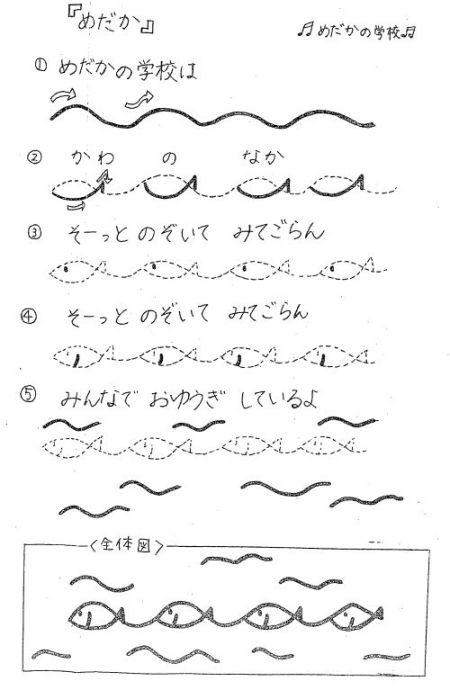 『めだか』
♬めだかの学校♬
① めだかの学校は
② かわ の なか
③ そーっと のぞいて みてごらん
④ そーっと のぞいて みてごらん
⑤ みんなで おゆうぎ しているよ
〈全体図〉